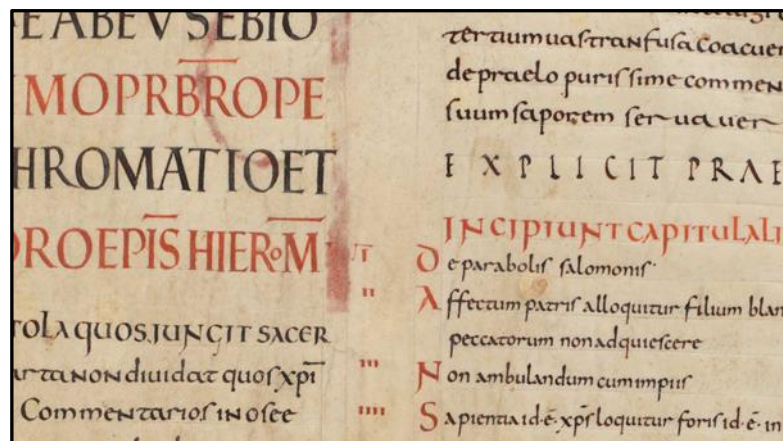 E ABEUSEBIO
MOPRBROPE
HROMATIOET
ROEPIS HIEROM
TOLA QUOS JUNGIT SACER
NON dividat quos xpi
Commentarios in osee
tertium uas tranfusa coacuer
de praelo purissime commen
suum saporem seruauer
EXPLICIT PRAE
INCIPIUNT CAPITULA LI
De parabolis salomonis
II Affectum patris alloquitur filium blan
peccatorum non adquiescere
III Non ambulandum cum impiis
IIII Sapientia id·e· xps loquitur foris id·e· in